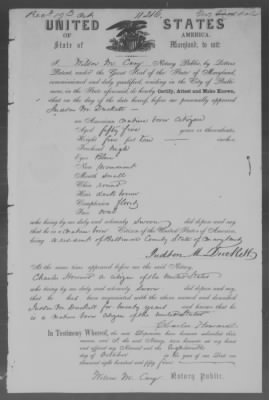 Rec'd 19th Oct
11216
UNITED STATES
OF AMERICA.
State of Maryland, to wit:
I Wilson M. Cary, Notary Public, by Letters
Patent, under the Great Seal of the State of Maryland,
commissioned and duly qualified, residing in the City of Balti-
more, in the State aforesaid, do hereby Certify, Attest and Make Known,
that on the day of the date hereof, before me personally appeared
Judson M. Duckett
an American native born citizen
Aged fifty five years or thereabouts,
Height five feet ten inches
Forehead high
Eyes blue
Nose prominent
Mouth small
Chin round
Hair dark brown
Complexion florid
Face oval
who being by me duly and solemnly Sworn did depose and say
that he is a native born Citizen of the United States of America,
being a resident of Baltimore County State of Maryland
Judson M. Duckett
At the same time appeared before me the said Notary,
Charles Howard a citizen of the United States
who being by me duly and solemnly Sworn did depose and say
that he has been acquainted with the above named and described
Judson M. Duckett for twenty years and knows that he
is a native born citizen of the United States
Charles Howard
In Testimony Whereof, the said Deponents have hereunto subscribed their
names, and I the said Notary, have hereunto set my hand
and affixed my Notarial seal the
day of October in the year of our Lord one
thousand eight hundred and fifty
Wilson M. Cary Notary Public.